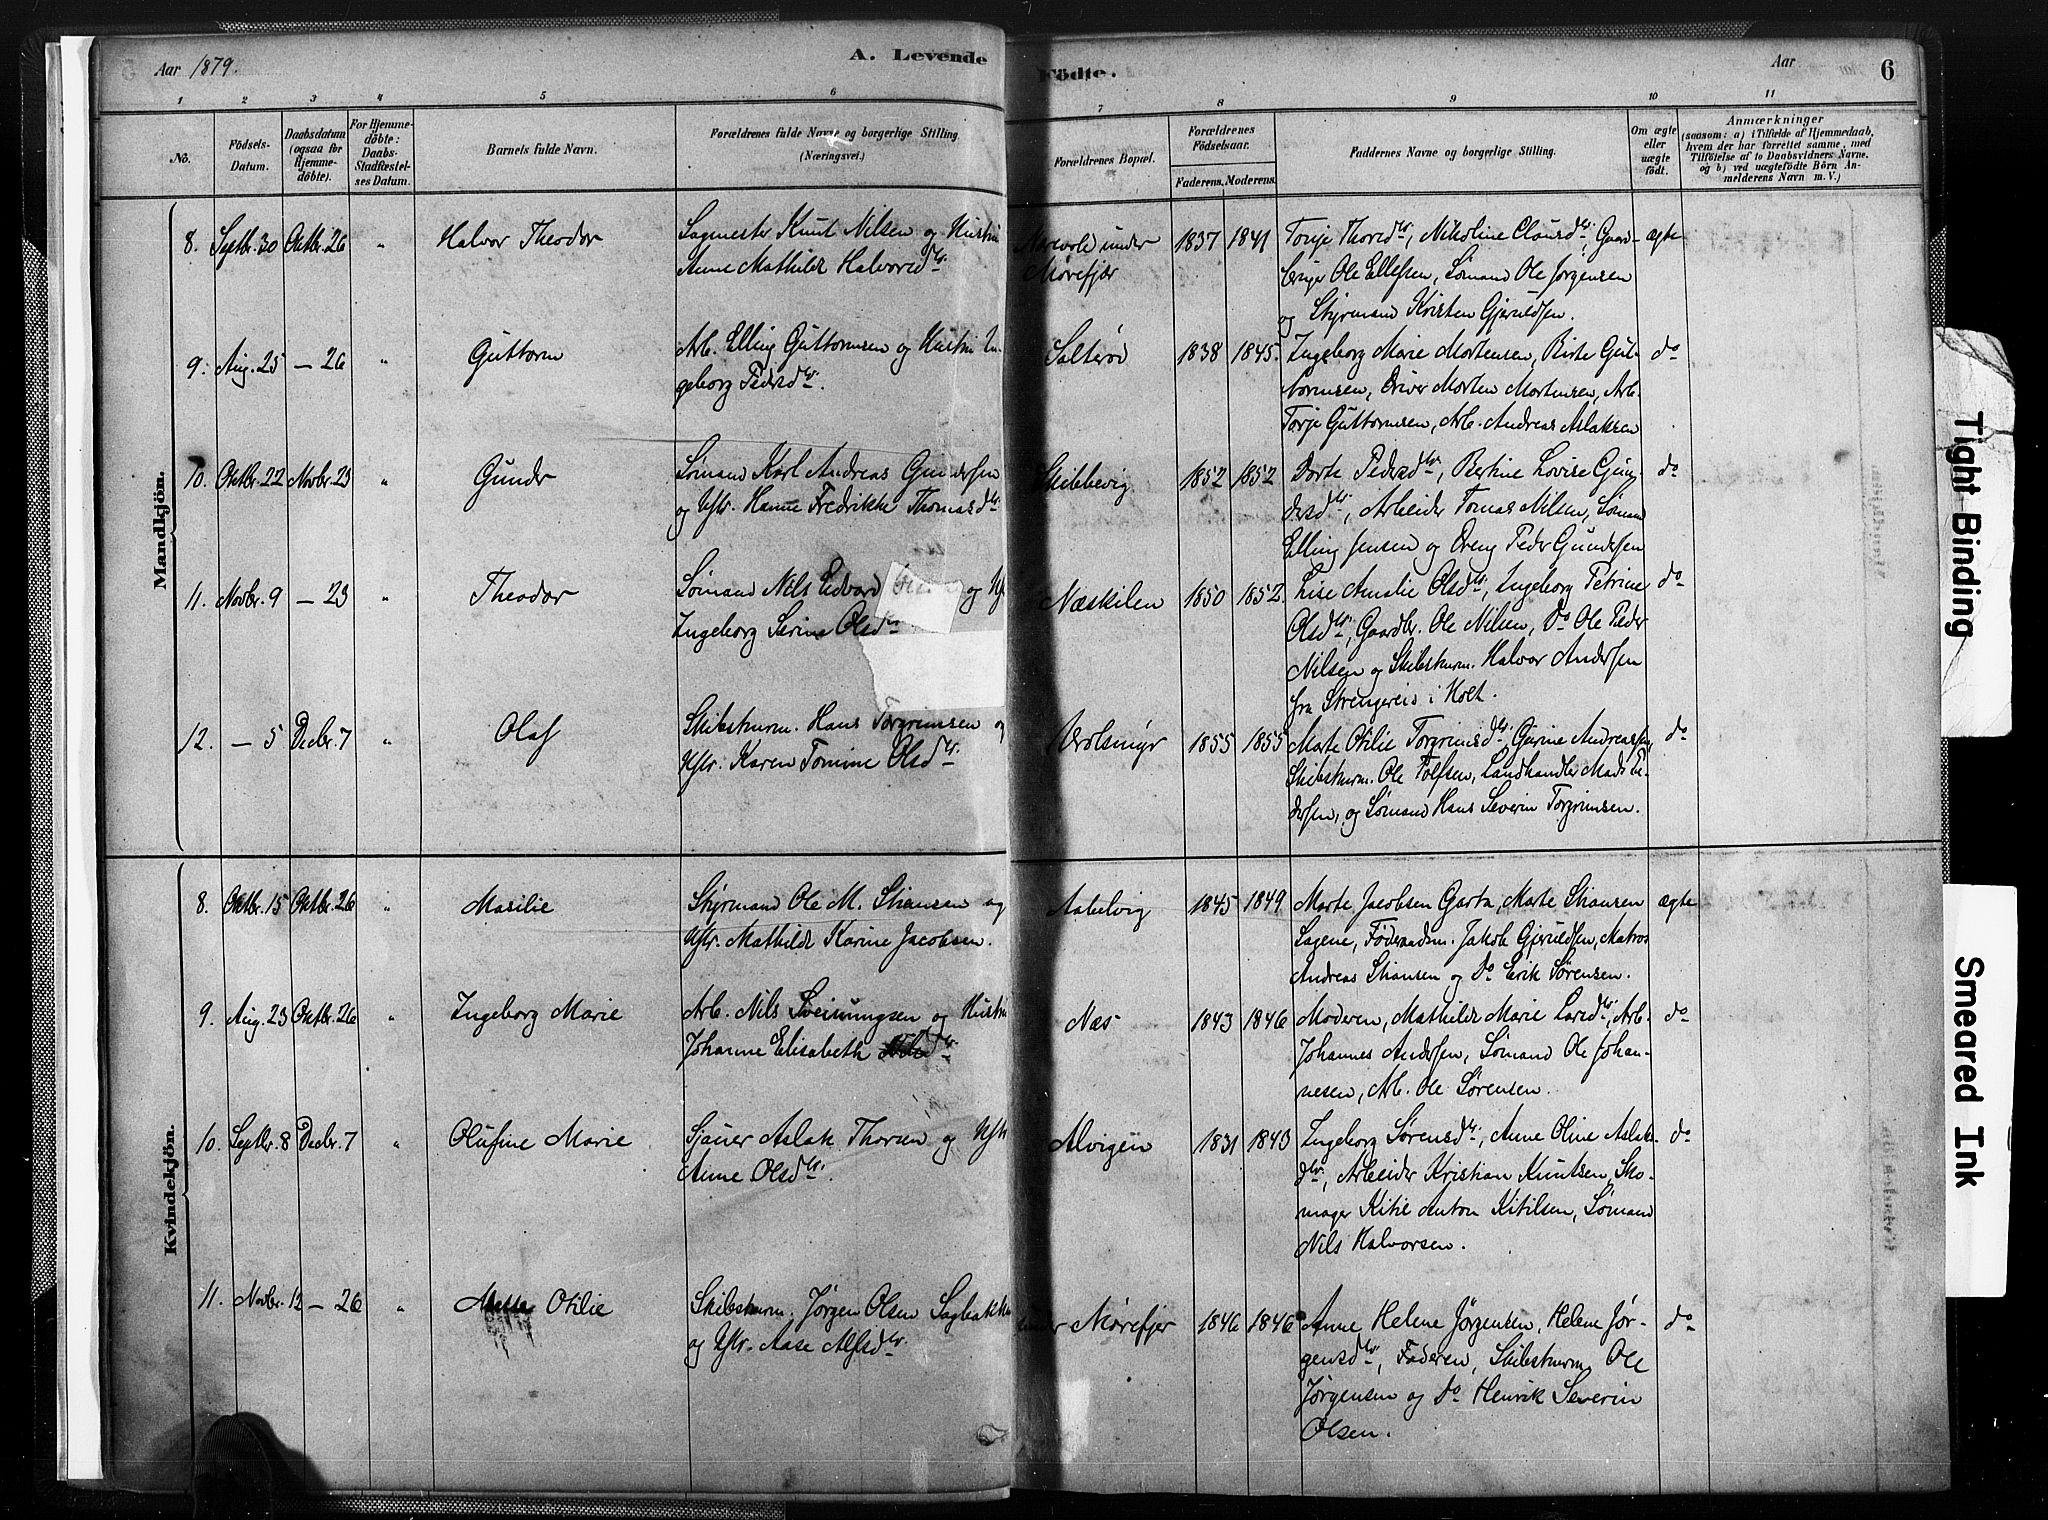 Aar 1879.
A. Levende
Födte.
Aar
6
1 2 3 4 5 6 7 8 9 10 11
No.
Födsels-
Datum.
Daabsdatum
(ogsaa for
Hjemme-
döbte).
For Hjemme-
döbte:
Daabs-
Stadfæstel-
ses Datum.
Barnets fulde Navn.
Forældrenes fulde Navne og borgerlige Stilling.
(Næringsvei.)
Forældrenes Bopæl.
Forældrenes
Födselsaar.
Faderens. Moderens.
Faddernes Navne og borgerlige Stilling.
Om ægte
eller
uægte
födt.
Anmærkninger
(saasom: a) i Tilfælde af Hjemmedaab,
hvem der har forrettet samme, med
Tilföielse af to Daabsvidners Navne.
og b) ved uægtefödte Börn An-
melderens Navn m. V.)
Mandkjön.
8. Septbr. 30 Oktbr. 26 " Halvor Theodor
Sagmester Knut Nilsen og Hustru
Anne Mathilde Halvorsdtr.
under
Mörefjær
1837 1841
Torje Thorsdtr, Nikoline Clausdtr, Gaard-
bruger Ole Ellefsen, Sömand Ole Jörgensen
og Styrmand Kristen Gjeruldsen.
ægte
9. Aug. 25 — 26 " Guttorm
Arb. Elling Guttormsen og Hustru In-
geborg Pedersdtr.
Salteröd
1838 1845.
Ingeborg Marie Mortensen, Birte Gut-
tormsen, Driver Morten Mortensen, Arb.
Torje Guttormsen, Arb. Andreas Aslaksen
do
10. Oktbr. 22 Novbr. 23 " Gunder
Sömand Karl Andreas Gundersen
og Hstr. Hanne Fredrikke Thomasdtr
Skibbevig
1852 1852
Dorte Pedersdtr, Bertine Lovise Gun-
dersdtr, Arbeider Tomas Nilsen, Sömand
Elling Jensen og Dreng Peder Gundersen
do
11. Novbr. 9 — 23 " Theodor
Sömand Nils Edvard og H
Ingeborg Serine Olsdtr
Næskilen
1850 1852.
Lise Amalie Olsdtr, Ingeborg Petrine
Olsdtr, Gaardbr. Ole Nilsen, Do Ole Peder
Nilsen og Skibstmrm. Halvor Andersen
fra Strengereis i Holt.
do
12. — 5 Decbr. 7 " Olaf
Skibstmrm. Hans Torgrimsen og
Hstr. Karen Tomine Olsdtr.
1855 1855
Marte Otilie Torgrimsdtr, Gurine Andreassen,
Skibstmrm. Ole Tolfsen, Landhandler Mads Pe-
dersen, og Sömand Hans Severin Torgrimsen.
do
Kvindekjön.
8. Oktbr. 15 Oktbr. 26 " Masilie
Styrmand Ole M. Stiansen og
Hstr. Mathilde Karine Jacobsen.
1845 1849
Marte Jacobsen Garta, Marte Stiansen
Sagene, Föderaadsm. Jakob Gjeruldsen, Matros
Andreas Stiansen og Do Erik Sörensen.
ægte
9. Aug. 23 Oktbr. 26 " Ingeborg Marie
Arb. Nils Sveinungsen og Hustru
Johanne Elisabeth
Næs
1843 1846
Moderen, Mathilde Marie Larsdtr, Arb.
Johannes Andersen, Sömand Ole Johan-
nesen, Arb. Ole Sörensen.
do
10. Septbr. 8 Decbr. 7 " Olufine Marie
Sjauer Aslak Thorsen og Hstr
Anne Olsdtr.
Alvigen
1831 1843
Ingeborg Sörensdtr, Anne Oline Aslaks-
dtr, Arbeider Kristian Knutsen, Sko-
mager Kitil Anton Kitilsen, Sömand
Nils Halvorsen.
do
11. Novbr. 12 — 26 " Mette Otilie
Skibstmrm. Jörgen Olsen Sagbakken
og Hstr. Aase Alfsdtr.
under Mörefjær
1846 1846
Anne Helene Jörgensen, Helene Jör-
gensdtr, Faderen, Skibstmrm Ole
Jörgensen og Do Henrik Severin
Olsen.
do
Tight Binding
Smeared Ink